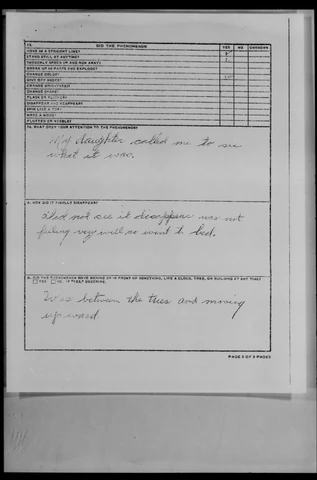 DID THE PHENOMENON YES NO UNKNOWN
MOVE IN A STRAIGHT LINE?
STAND STILL AT ANYTIME?
SUDDENLY SPEED UP AND RUN AWAY?
BREAK UP IN PARTS AND EXPLODE?
CHANGE COLOR?
GIVE OFF SMOKE?
CHANGE BRIGHTNESS?
CHANGE SHAPE?
FLASH OR FLICKER?
DISAPPEAR AND REAPPEAR?
SPIN LIKE A TOP?
MAKE A NOISE?
FLUTTER OR WOBBLE?
WHAT DREW YOUR ATTENTION TO THE PHENOMENON?
My daughter called me to see
what it was.
HOW DID IT FINALLY DISAPPEAR?
I did not see it disappear was not
feeling very well so went to bed.
DID THE PHENOMENON MOVE BEHIND OR IN FRONT OF SOMETHING, LIKE A CLOUD, TREE, OR BUILDING AT ANY TIME?
YES NO. IF "YES," DESCRIBE.
It was between the trees and moving
upward
PAGE 3 OF 5 PAGES